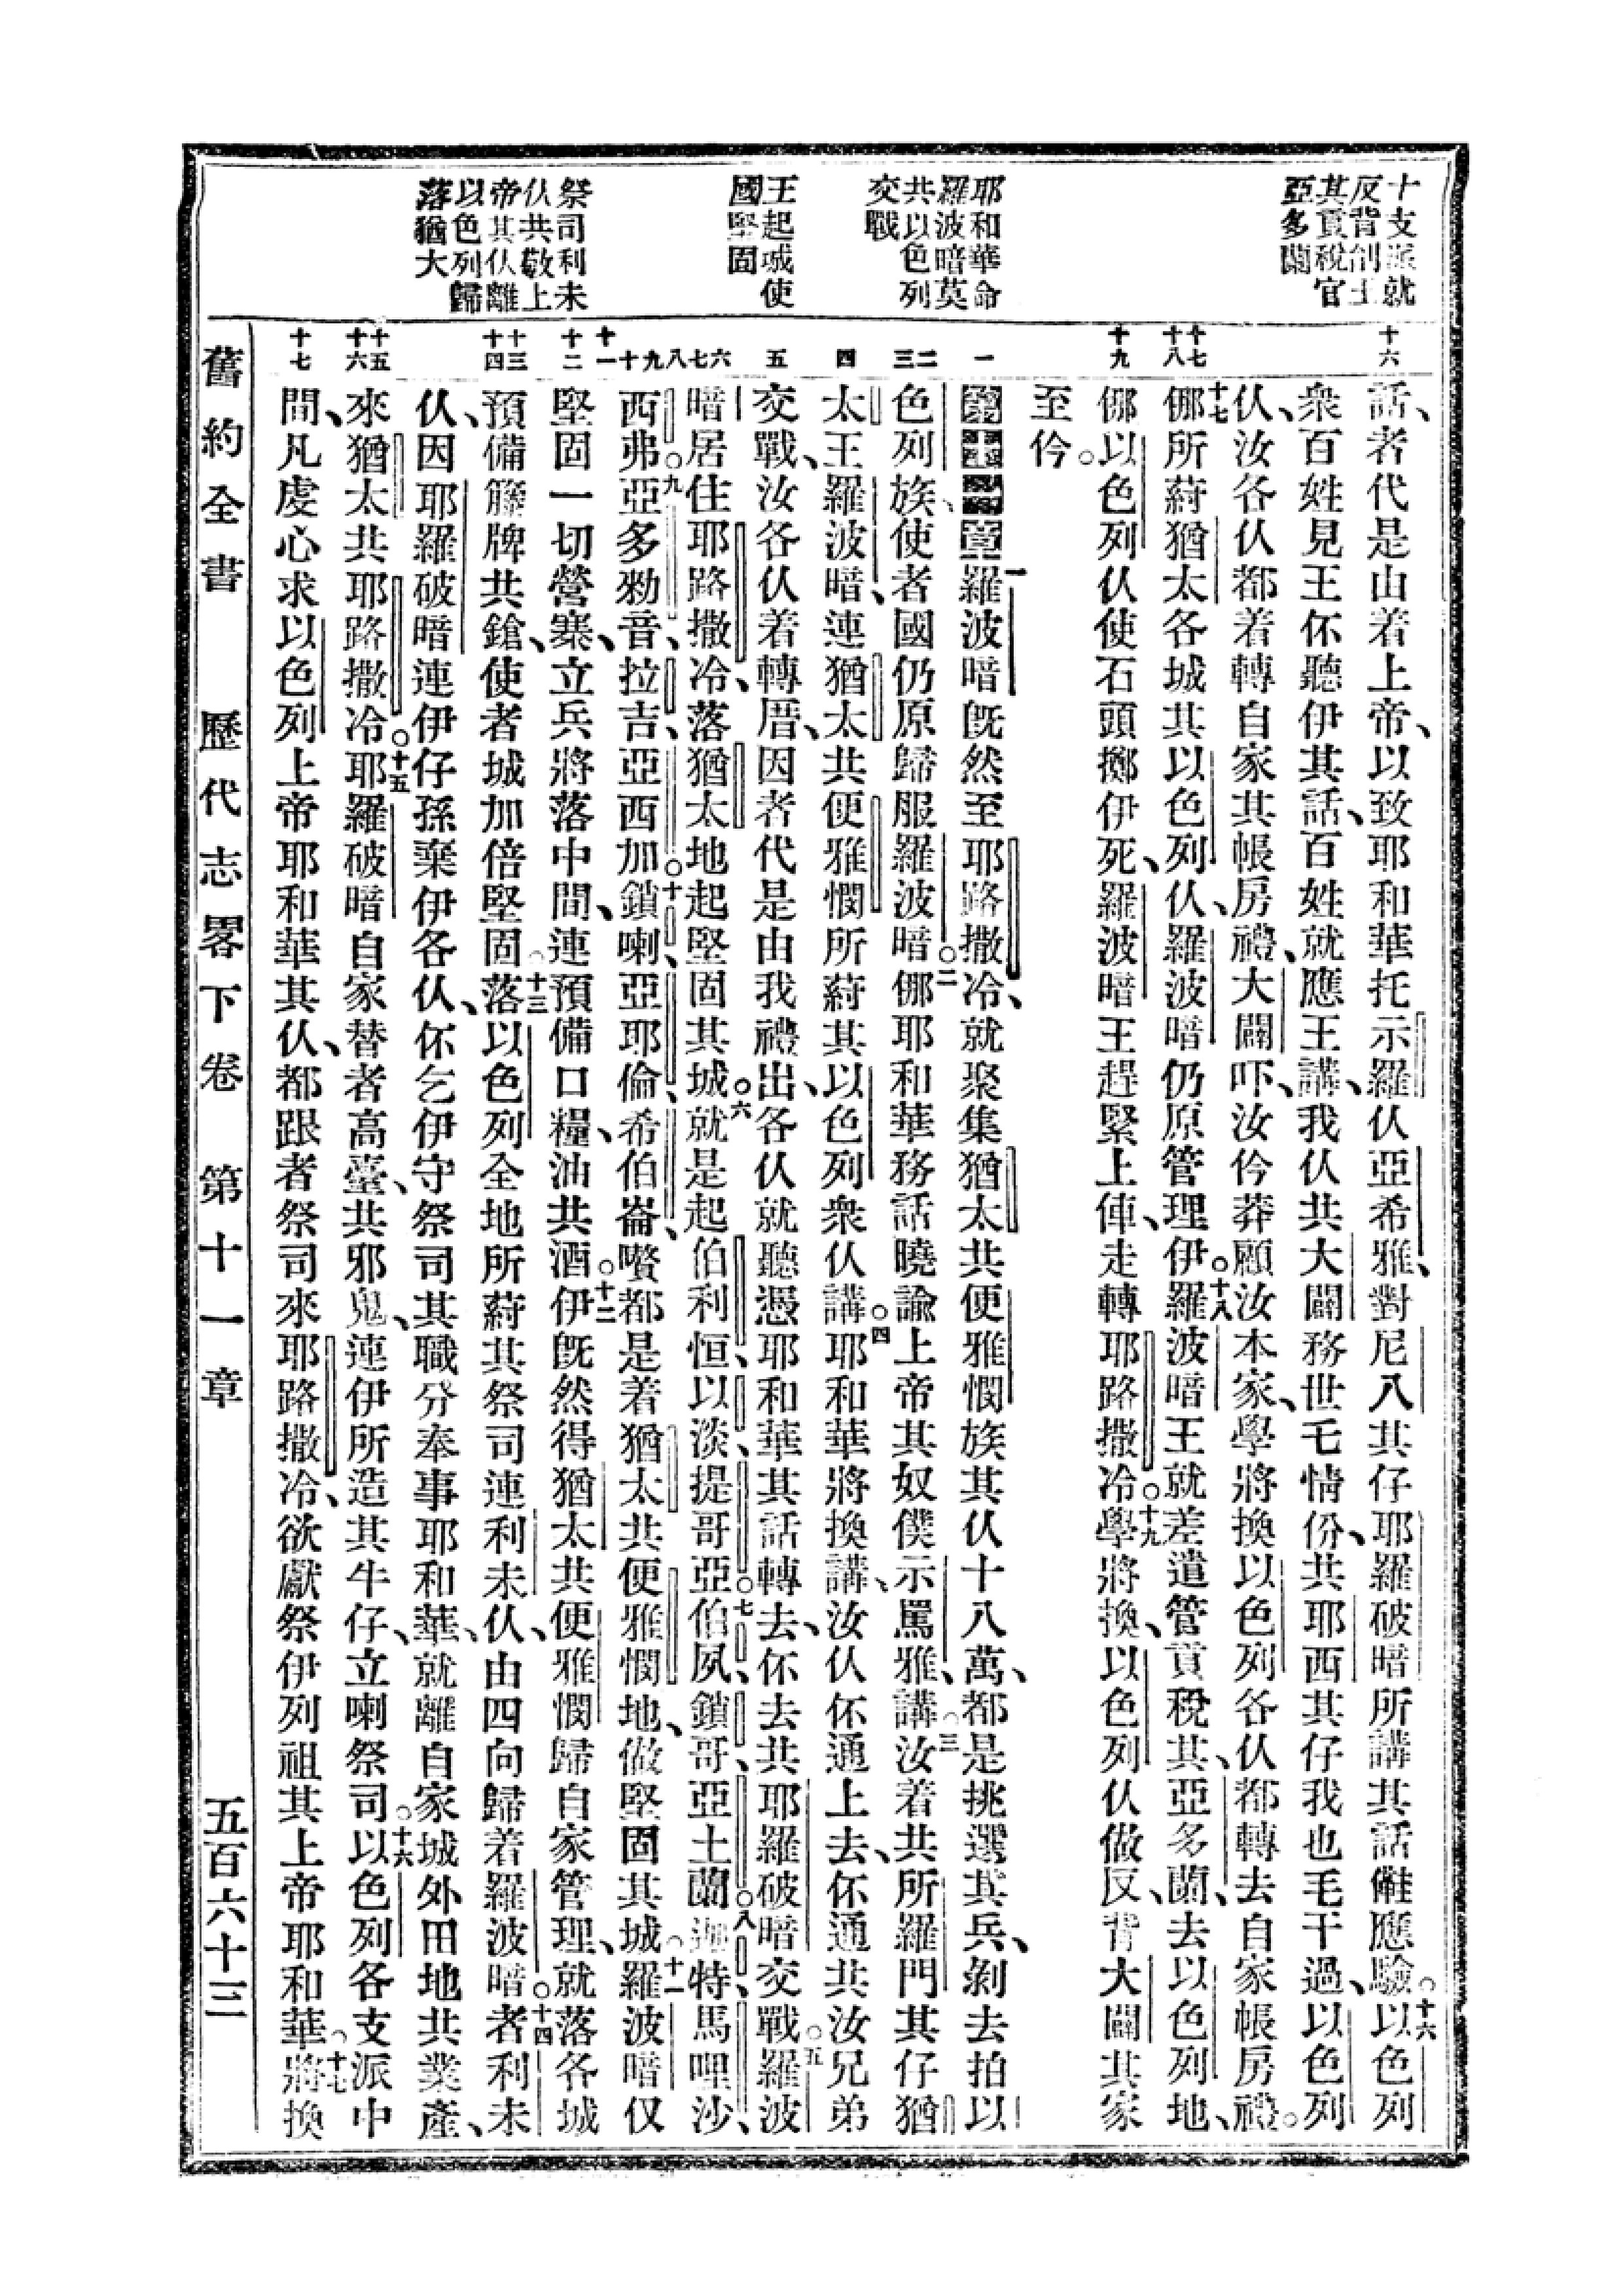 十支派就
反背創王
其貢稅官
亞多蘭
耶和華命
羅波暗莫
共以色列
交戰
王起城使
國堅固
祭司利未
仈共敬上
帝其仈離
以色列歸
落猶大
十六
十七
十八
十九
一
二
三
四
五
六
七
八
九
十
十一
十二
十三
十四
十五
十六
十七
話、者代是由着上帝、以致耶和華托示羅仈亞希雅、對尼八其仔耶羅破暗所講其話䧹應驗。十六以色列
衆百姓見王伓聽伊其話、百姓就應王講、我仈共大闢務世乇情份、共耶西其仔我也毛干過、以色列
仈、汝各仈都着轉自家其帳房禮、大闢吓、汝仱莽顧汝本家、學將換以色列各仈都轉去自家帳房禮。
十七㑚所蒔猶太各城其以色列仈、羅波暗仍原管理伊。十八羅波暗王就差遣管貢稅其、亞多蘭、去以色列地、
㑚以色列仈使石頭擲伊死、羅波暗王趕緊上俥、走轉耶路撒冷。十九學將換、以色列仈做反、背大闢其家
至仱。
第十一章一羅波暗旣然至耶路撒冷、就聚集猶太共便雅憫族其仈十八萬、都是挑選其兵、剝去拍以
色列族、使者國仍原歸服羅波暗。二㑚耶和華務話曉諭上帝其奴僕示罵雅、講。三汝着共所羅門其仔猶
太王羅波暗、連猶太共便雅憫所蒔其以色列衆仈講。四耶和華將換講、汝仈伓通上去、伓通共汝兄弟
交戰、汝各仈着轉厝、因者代是由我禮出、各仈就聽憑耶和華其話轉去、伓去共耶羅破暗交戰。五羅波
暗居住耶路撒冷、落猶太地起堅固其城。六就是起伯利恒、以淡、提哥亞。七伯夙、鎖哥、亞土蘭。八迦特、馬哩沙、
西弗。九亞多勑音、拉吉、亞西加。十鎖喇、亞耶倫、希伯崙、嚽都是着猶太共便雅憫地、做堅固其城。十一羅波暗仅
堅固一切營寨、立兵將落中間、連預備口糧、油共酒。十二伊旣然得猶太共便雅憫歸自家管理、就落各城
預備籐牌共鎗、使者城加倍堅固。十三落以色列全地所蒔其祭司連利未仈、由四向歸着羅波暗。十四者利未
仈、因耶羅破暗連伊仔孫棄伊各仈、伓乞伊守祭司其職分奉事耶和華、就離自家城外田地共業產、
來猶太共耶路撒冷。十五耶羅破暗自家替者高臺、共邪鬼、連伊所造其牛仔、立喇祭司。十六以色列各支派中
間、凡虔心求以色列上帝耶和華其仈、都跟者祭司來耶路撒冷、欲獻祭伊列祖其上帝耶和華。十七將換
舊約全書　歷代志畧下卷　第十一章　五百六十三